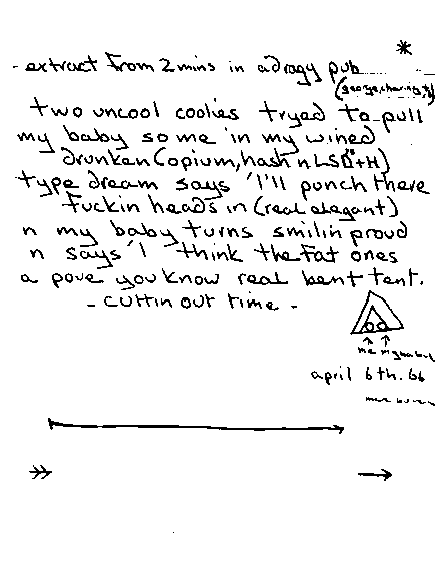 *
- extract from 2 mins in a dragy pub
two uncool coolies tryed to pull
my baby so me in my wined
drunken (opium, hash n LSD + H)
type dream says 'I'll punch there
fuckin heads in (real elegant)
n my baby turns smilin proud
n says 'I think the fat ones
a pove you know real bent tent.
- cuttin out time -
me my
april 6th. 66